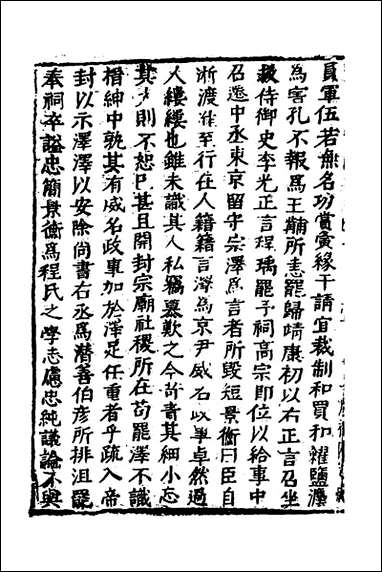 員軍伍若無名功賞夤緣干請宜裁制和買和糴鹽灋
為害孔不報爲王黼所恚罷歸靖康初以右正言召坐
救侍御史李光正言程瑀罷子祠高宗即位以給事中
召遷中丞東京留守宗澤爲言者所毀短景衡曰臣自
浙渡淮至行在人籍籍言澤爲京尹威名政卓然過
人縷縷也雖未識其人私竊慕歎之今訴責其細小忘
其大則不恕已甚且開封宗廟社稷所在苟罷澤不識
搢紳中孰其有威名政事加於澤足任重者乎疏入帝
封以示澤澤以安除尚書右丞爲潛善伯彥所排沮罷
奉祠卒謚忠簡景衡爲程氏之學志慮忠純議論不與